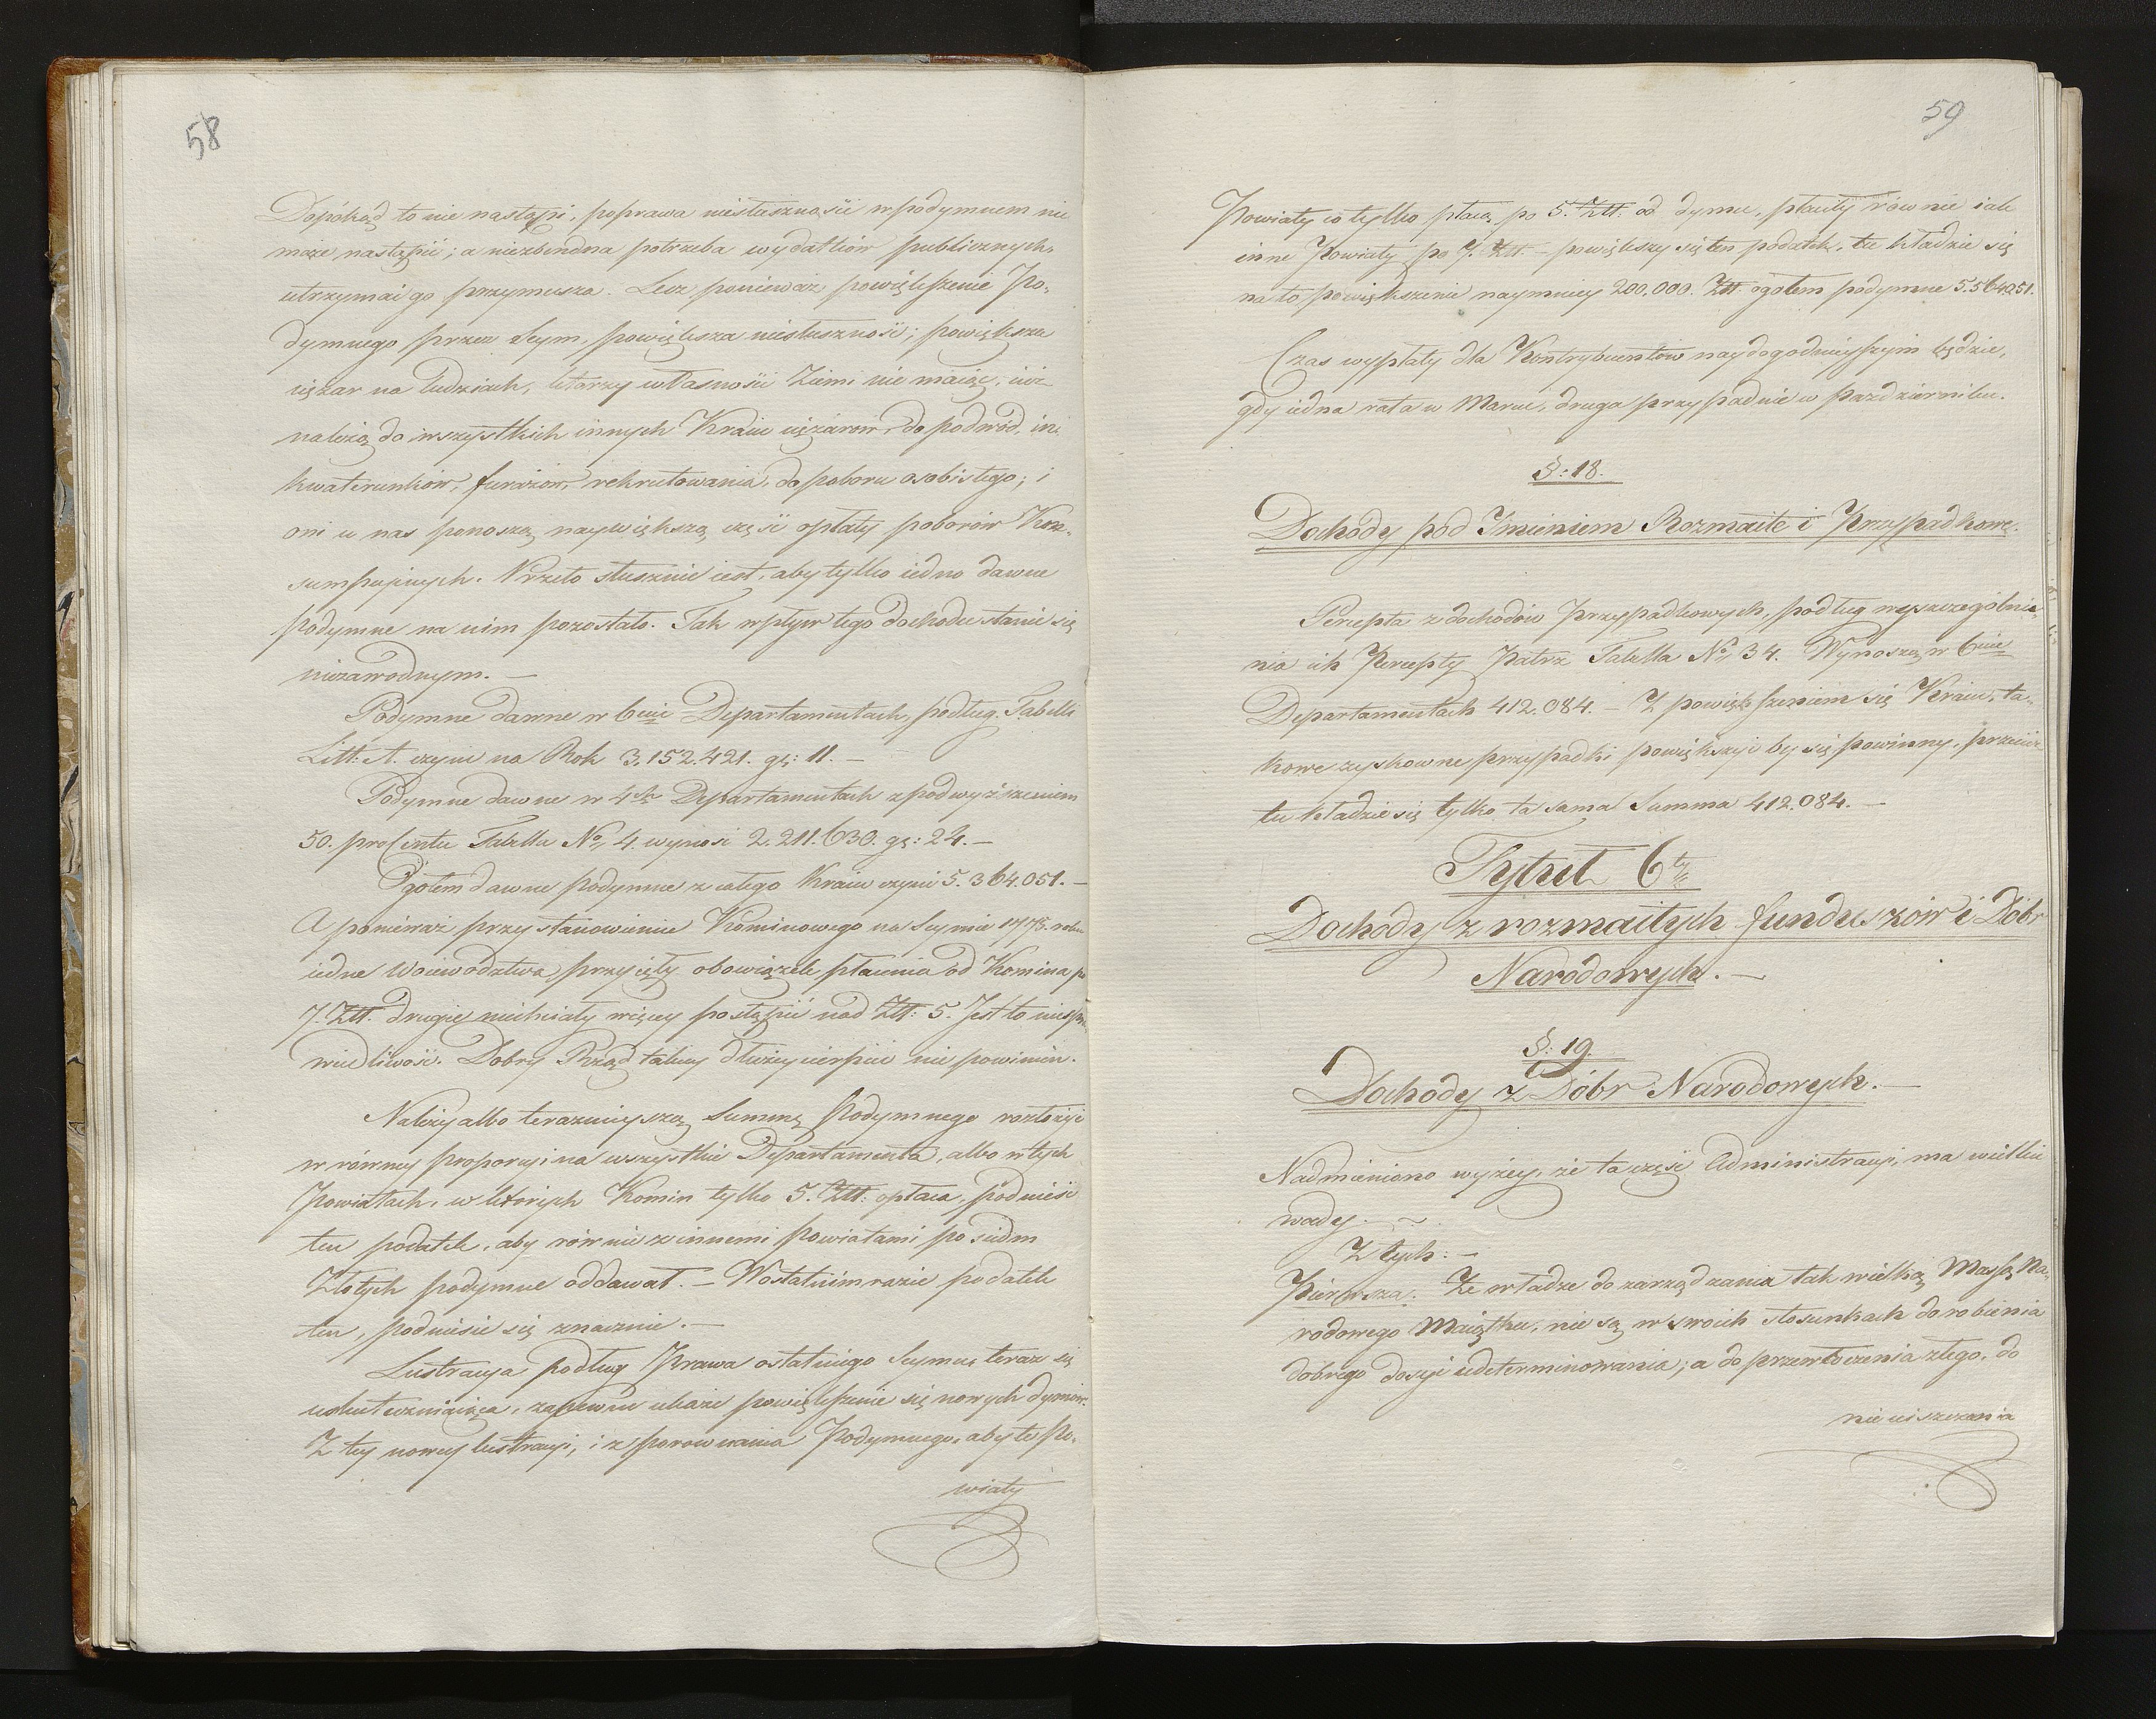 58
Dopókąd to nie nastąpi, poprawa niesłuszności w podymnem nie
może nastąpić; a niezbendna potrzeba wydatków publicznych,
utrzymać go przymusza. Lecz ponieważ powiększenie Po-
dymnego przez Seym, powiększa niesłuszność; powiększa
ciężar na ludziach, którzy własności Ziemi nie maiąc, iuż
należą do wszystkich innych Kraiu ciężarów, do podwód, in-
kwaterunków, furażów, rekrutowania, do poboru osobistego; i
oni u nas ponoszą naywiększą część opłaty poborów Kon-
sumpcyinych. Przeto słusznie iest, aby tylko iedno dawne
podymne na nim pozostało. Tak wpływ tego dochodu stanie się
niezawodnym. —
Podymne dawne w 6ciu Departamentach, podług Tabelli
Litt: A. czyni na Rok 3,152.421. gr: 11. —
Podymne dawne w 4ch Departamentach z podwyższeniem
50. proCentu Tabella No 4. wynosi 2.211.630. gr: 24. —
Ogołem dawne podymne z całego Kraiu czyni 5.364.051. —
A ponieważ przy stanowieniu Kominowego na Seymie 1775. roku
iedne Woiewodztwa przyięły obowiązek płacenia od Komina po
7. Złł. drugie niechciały więcey postąpić nad Złł: 5. Jest to niespra-
wiedliwość. Dobry Rząd takiey dłużey cierpieć nie powinien.
Należy albo teraznieyszą Summę Podymnego rozłożyć
w równey proporcyi na wszystkie Departamenta, albo w tych
Powiatach, w których Komin tylko 5. Złł: opłaca, podnieść
ten podatek, aby równie z innemi powiatami po siedm
Złotych podymne oddawał. — W ostatnim razie podatek
ten, podniesie się znacznie. —
Lustracya podług Prawa ostatniego Seymu teraz się
uskuteczniaiąca, zapewne ukaże powiększenie się nowych dymów.
Z tey nowey lustracyi, i z porównania Podymnego, aby te Po-
wiaty
59
Powiaty co tylko płacą po 5. Złł. od dymu, płaciły równie iak
inne Powiaty po 7. Złł. — powiększy się ten podatek, tu kładzie się
na to powiększenie naymniey 200.000. Złł. ogołem podymne 5.564.051.
Czas wypłaty dla Kontrybuentów naydogodnieyszym będzie,
gdy iedna rata w Marcu, druga przypadnie w pazdzierniku.
§: 18.
Dochody pod Imieniem Rozmaite i Przypadkowe.
Percepta z dochodów Przypadkowych, podług wyszczególnie-
nia ich Percepty Patrz Tabella No 34. Wynoszą w 6ciu
Departamentach 412.084. — Z powiększeniem się Kraiu, ta-
kowe zyskowne przypadki powiększyć by się powinny, przecież
tu kładzie się tylko ta sama Summa 412.084. —
Tytuł 6ty
Dochody z rozmaitych funduszów i Dóbr
Narodowych. —
§: 19.
Dochody z Dóbr Narodowych. —
Nadmieniono wyżey, że ta część Administracyi, ma wielkie
wady. —
Z tych: —
Pierwsza. Że władze do zarządzania tak wielką Massą Na-
rodowego Maiątku, nie są w swoich stosunkach do robienia
dobrego dosyć udeterminowania; a do przewłoczenia złego, do
nieuiszczania